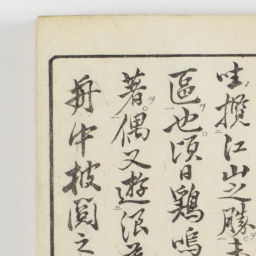 攬江山之勝
區也頃日鶏鳴
著偶又遊浪
舟中披圖之